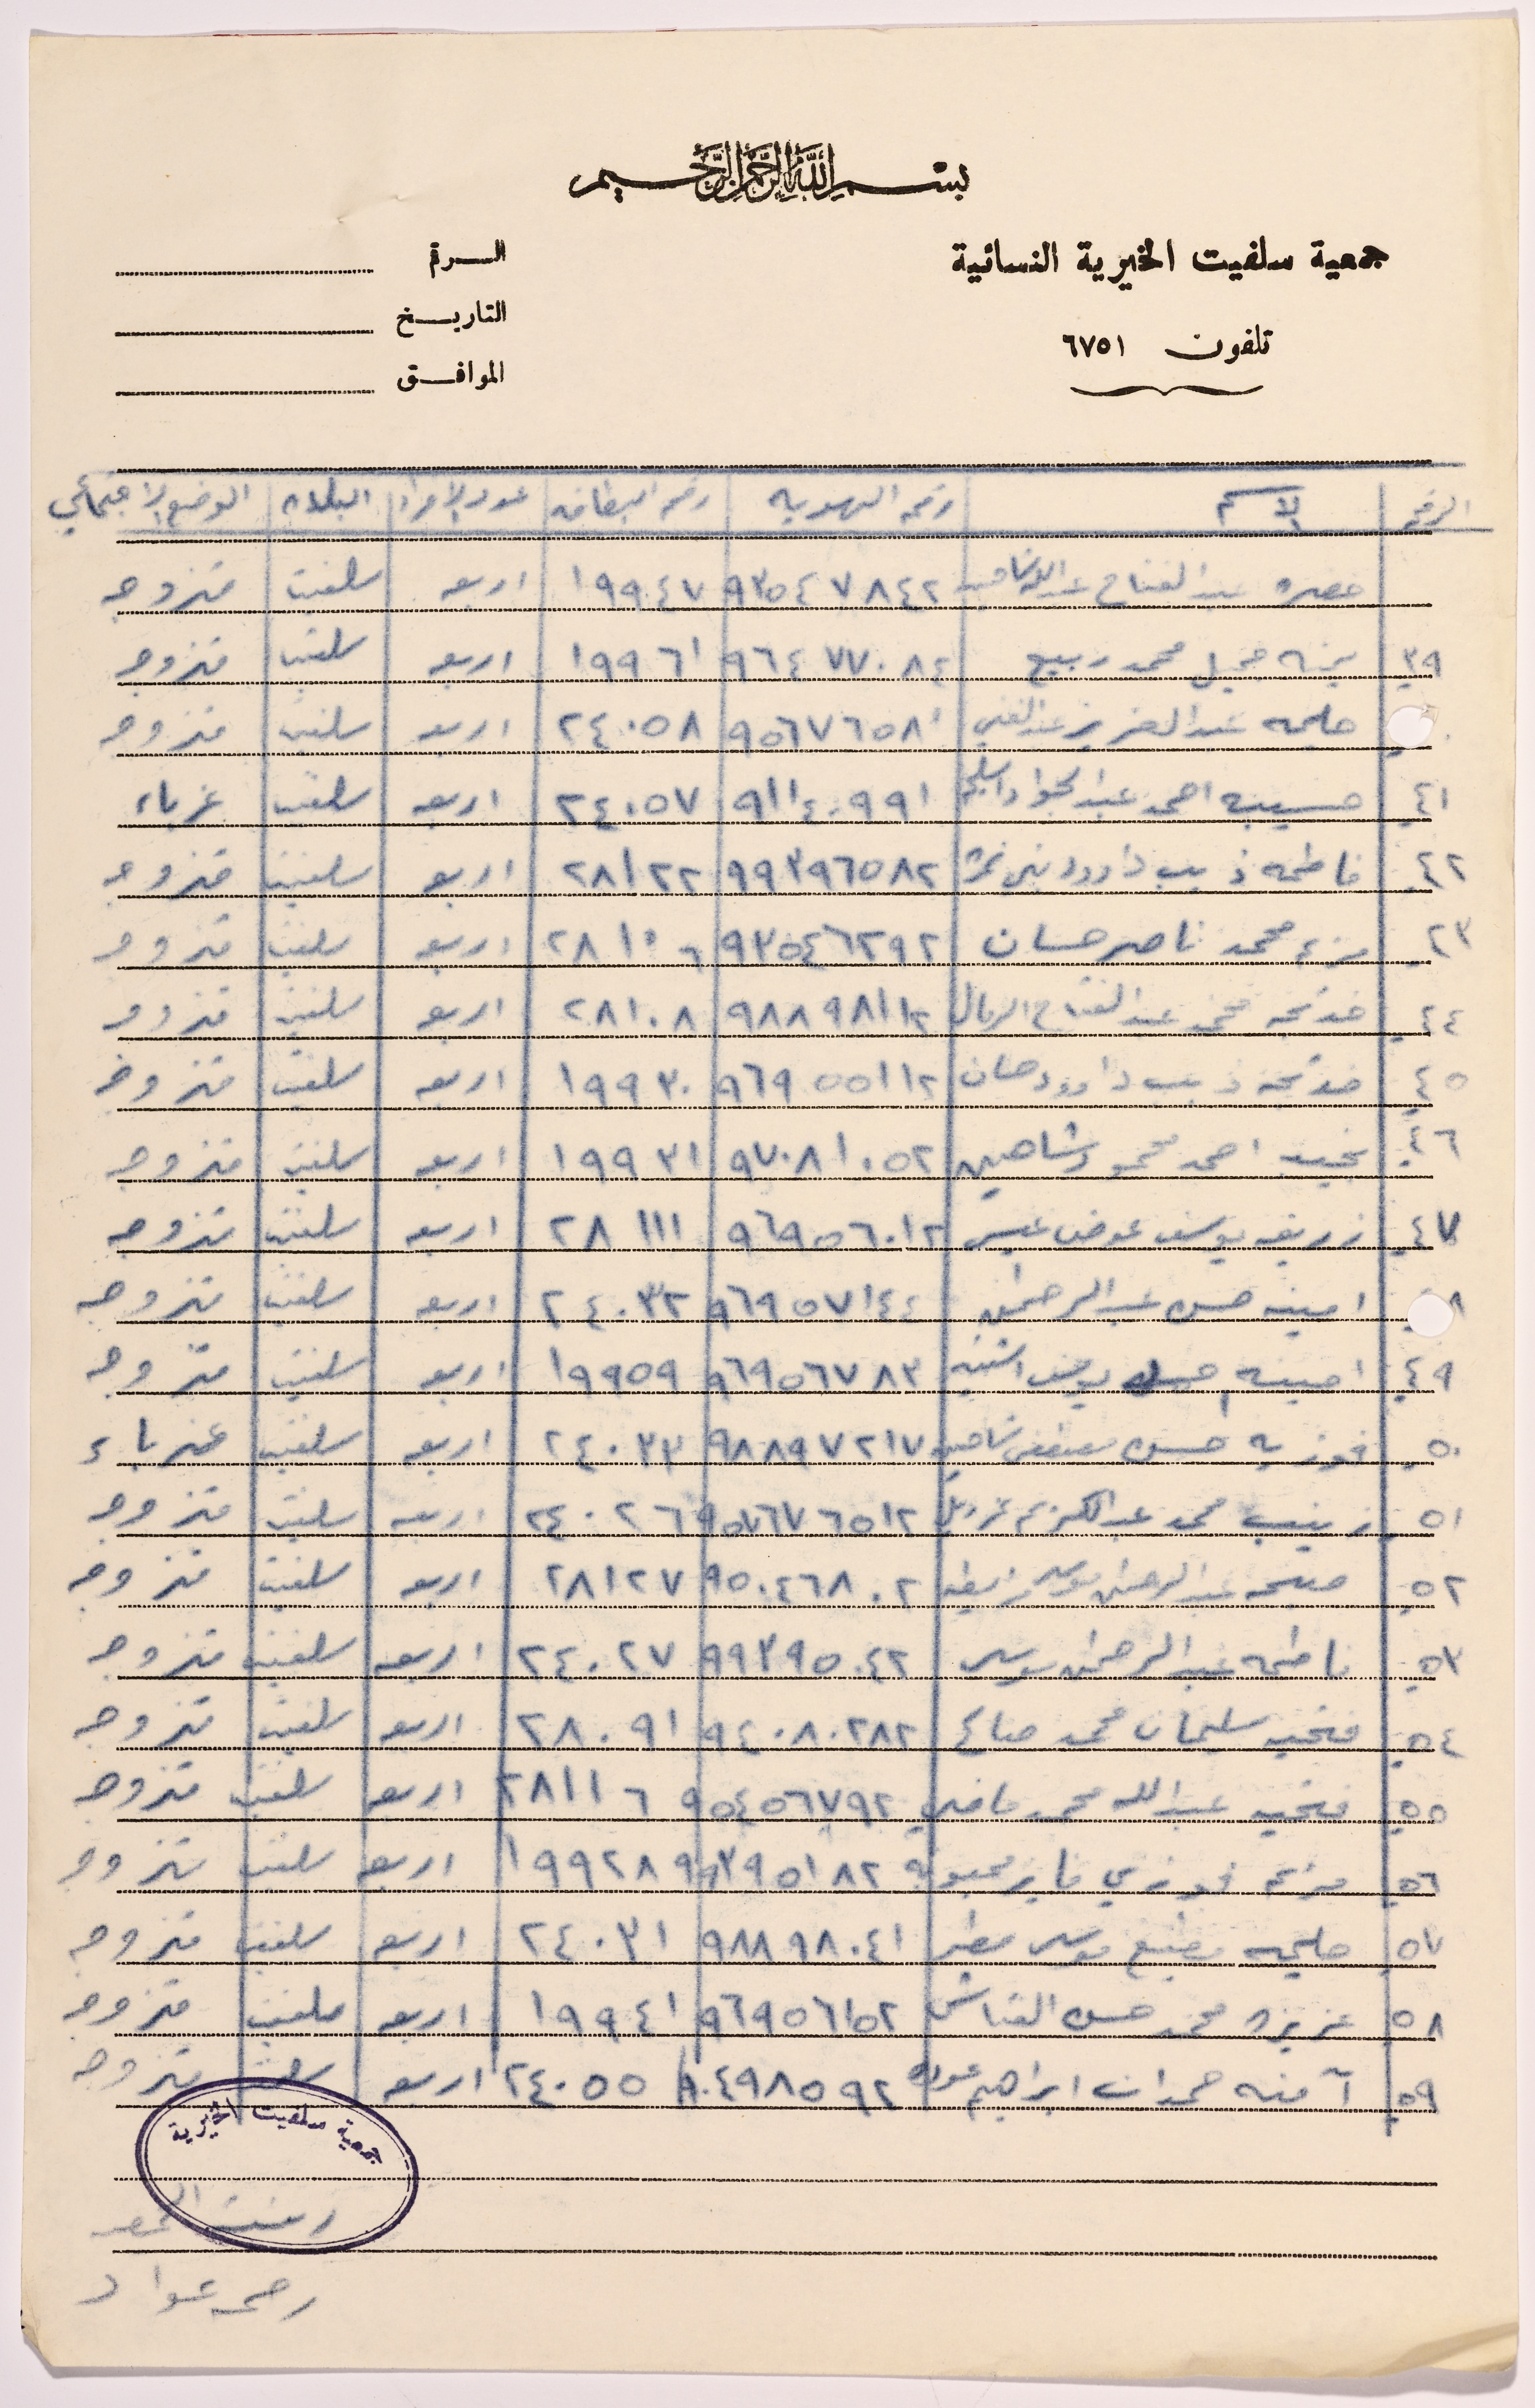 بسم الله الرحمن الرحيم
جمعية سلفيت الخيرية النسائية
الرقم
تلفون ٦٧٥١
التاريخ
الموافق
الرقم الاسم رقم الهوية رقم البطاقه عدد الافراد البلده الوضع الاجتماعي
عبد الفتاح ٩٣٥٤٧٨٤٢ ١٩٩٤٧ اربعه سلفيت متزوجه
٣٩ يمنه جميل محمد ربيع ٩٦٤٧٧٠٨٤ ١٩٩٦١ اربعه سلفيت متزوجه
حليمه عبد العزيز عبد الغني ٩٥٦٧٦٥٨١ ٢٤٠٥٨ اربعه سلفيت متزوجه
٤١ حسيبه احمد عبد الجواد ٩١١٤٠٩٩١ ٢٤٠٥٧ اربعه سلفيت عزباء
٤٢ فاطمه ذيب داوود بني نمره ٩٩٣٩٦٥٨٢ ٢٨١٢٢ اربعه سلفيت متزوجه
٤٣ مريم محمد ناصر حسان ٩٣٥٤٦٢٩٢ ٢٨١٠٦ اربعه سلفيت متزوجه
٤٤ خديجه محمد عبد الفتاح ٩٨٨٩٨١١٢ ٢٨١٠٨ اربعه سلفيت متزوجه
٤٥ خديجه ذيب داوود حسان ٩٦٩٥٥١١٢ ١٩٩٣٠ اربعه سلفيت متزوجه
٤٦ احمد محمود شاهين ٩٧٠٨١٠٥٢ ١٩٩٣١ اربعه سلفيت متزوجه
٤٧ زريفه يوسف عوض عيسى ٩٦٩٥٦٠١٢ ٢٨١١١ اربعه سلفيت متزوجه
٨ امينه حسن عبد الرحمن ٩٦٩٥٧١٤٤ ٢٤٠٣٢ اربعه سلفيت متزوجه
٤٩ امينه يوسف اشتيه ٩٦٩٥٦٧٨٣ ١٩٩٥٩ اربعه سلفيت متزوجه
٥٠ فوزيه حسن مصطفى شاهين ٩٨٨٩٧٢١٧ ٢٤٠٣٣ اربعه سلفيت عزباء
٥١ زينب محمد عبد الكريم ٢٤٠٢٦ اربعه سلفيت متزوجه
٥٢ عبد الرحمن موسى ٩٥٠٤٦٨٠٢ ٢٨١٢٧ اربعه سلفيت متزوجه
٥٣ فاطمه عبد الرحمن موسى ٩٩٣٩٥٠٤٢ ٢٤٠٢٧ اربعه سلفيت متزوجه
٥٤ فتحيه سليمان محمد صالح ٩٤٠٨٠٢٨٢ ٢٨٠٩١ اربعه سلفيت متزوجه
٥٥ فتحيه عبد الله محمد ماضي ٩٥٤٥٦٧٩٢ ٢٨١١٦ اربعه سلفيت متزوجه
٥٦ مريم فوزي فايز محبوبه ٩٩٣٩٥١٨٢ ١٩٩٢٨ اربعه سلفيت متزوجه
٥٧ حليمه مطيع موسى مطير ٩٨٨٩٨٠٤١ ٢٤٠٣١ اربعه سلفيت متزوجه
٥٨ عزيزه محمد حسن القناش ٩٦٩٥٦١٥٢ ١٩٩٤١ اربعه سلفيت متزوجه
٥٩ آمنه حمدان ابراهيم عوده ٨٠٤٩٨٥٩٢ ٢٤٠٥٥ اربعه سلفيت متزوجه
جمعية سلفيت الخيرية
عواد